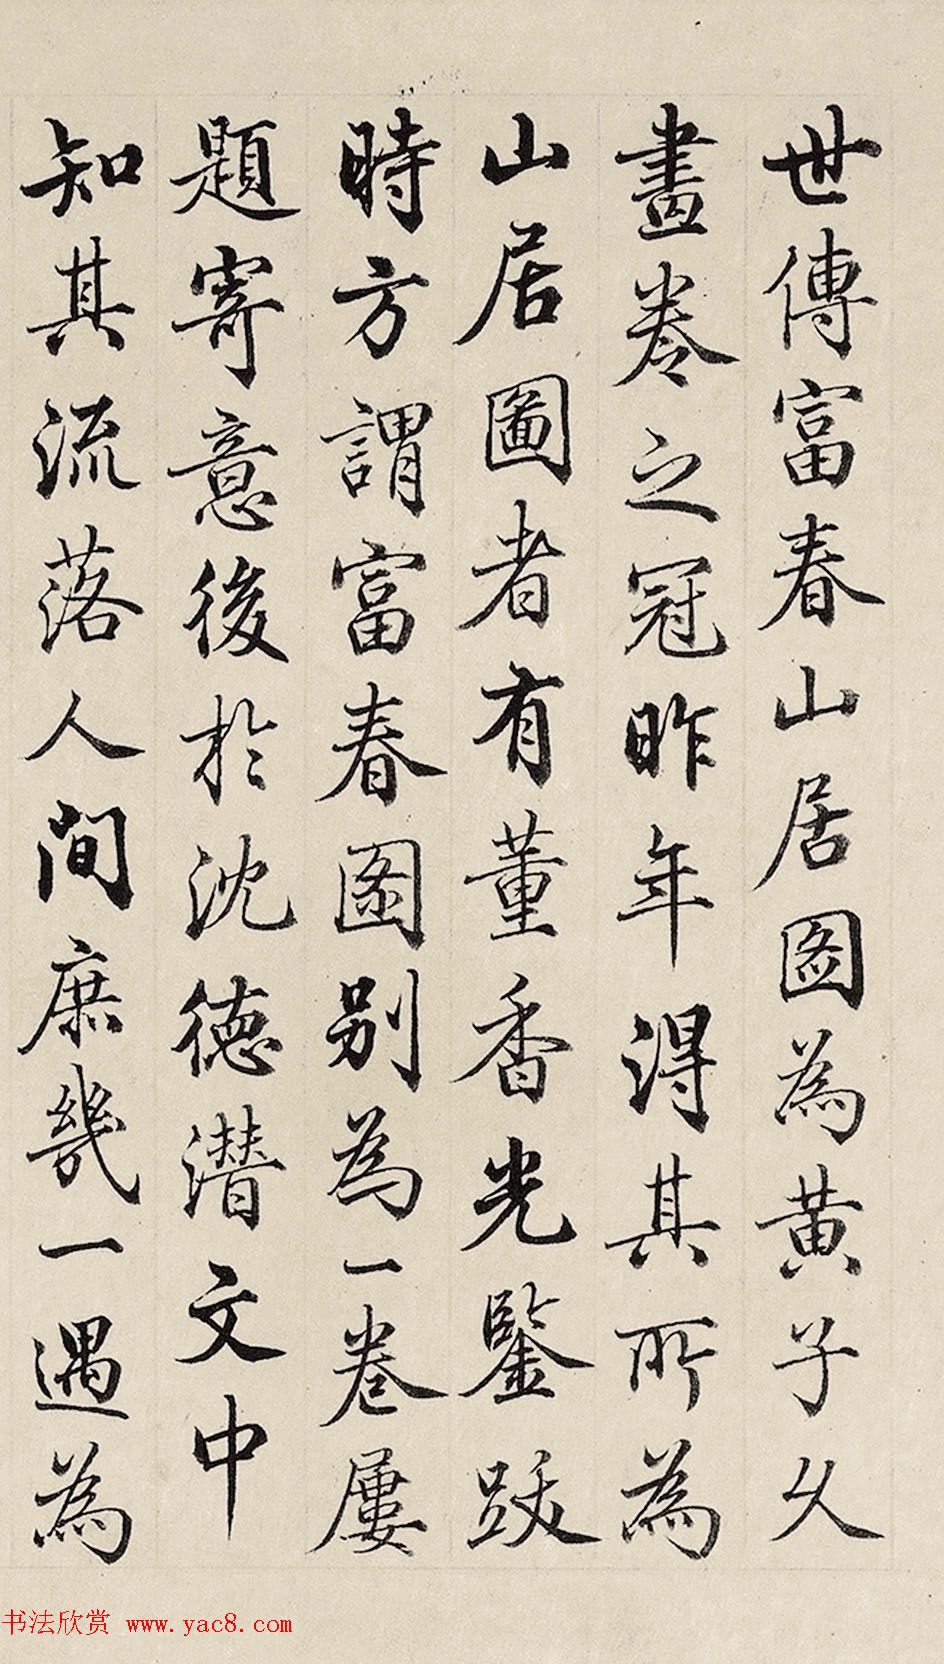 世傳富春山居圖為黃子久
畫卷之冠昨年得其所為
山居圖者有董香光鑒跋
時方謂富春圖別為一卷屢
題寄意後於沈德潛文中
知其流落人間庶幾一遇為
书法欣赏 www.yac8.com